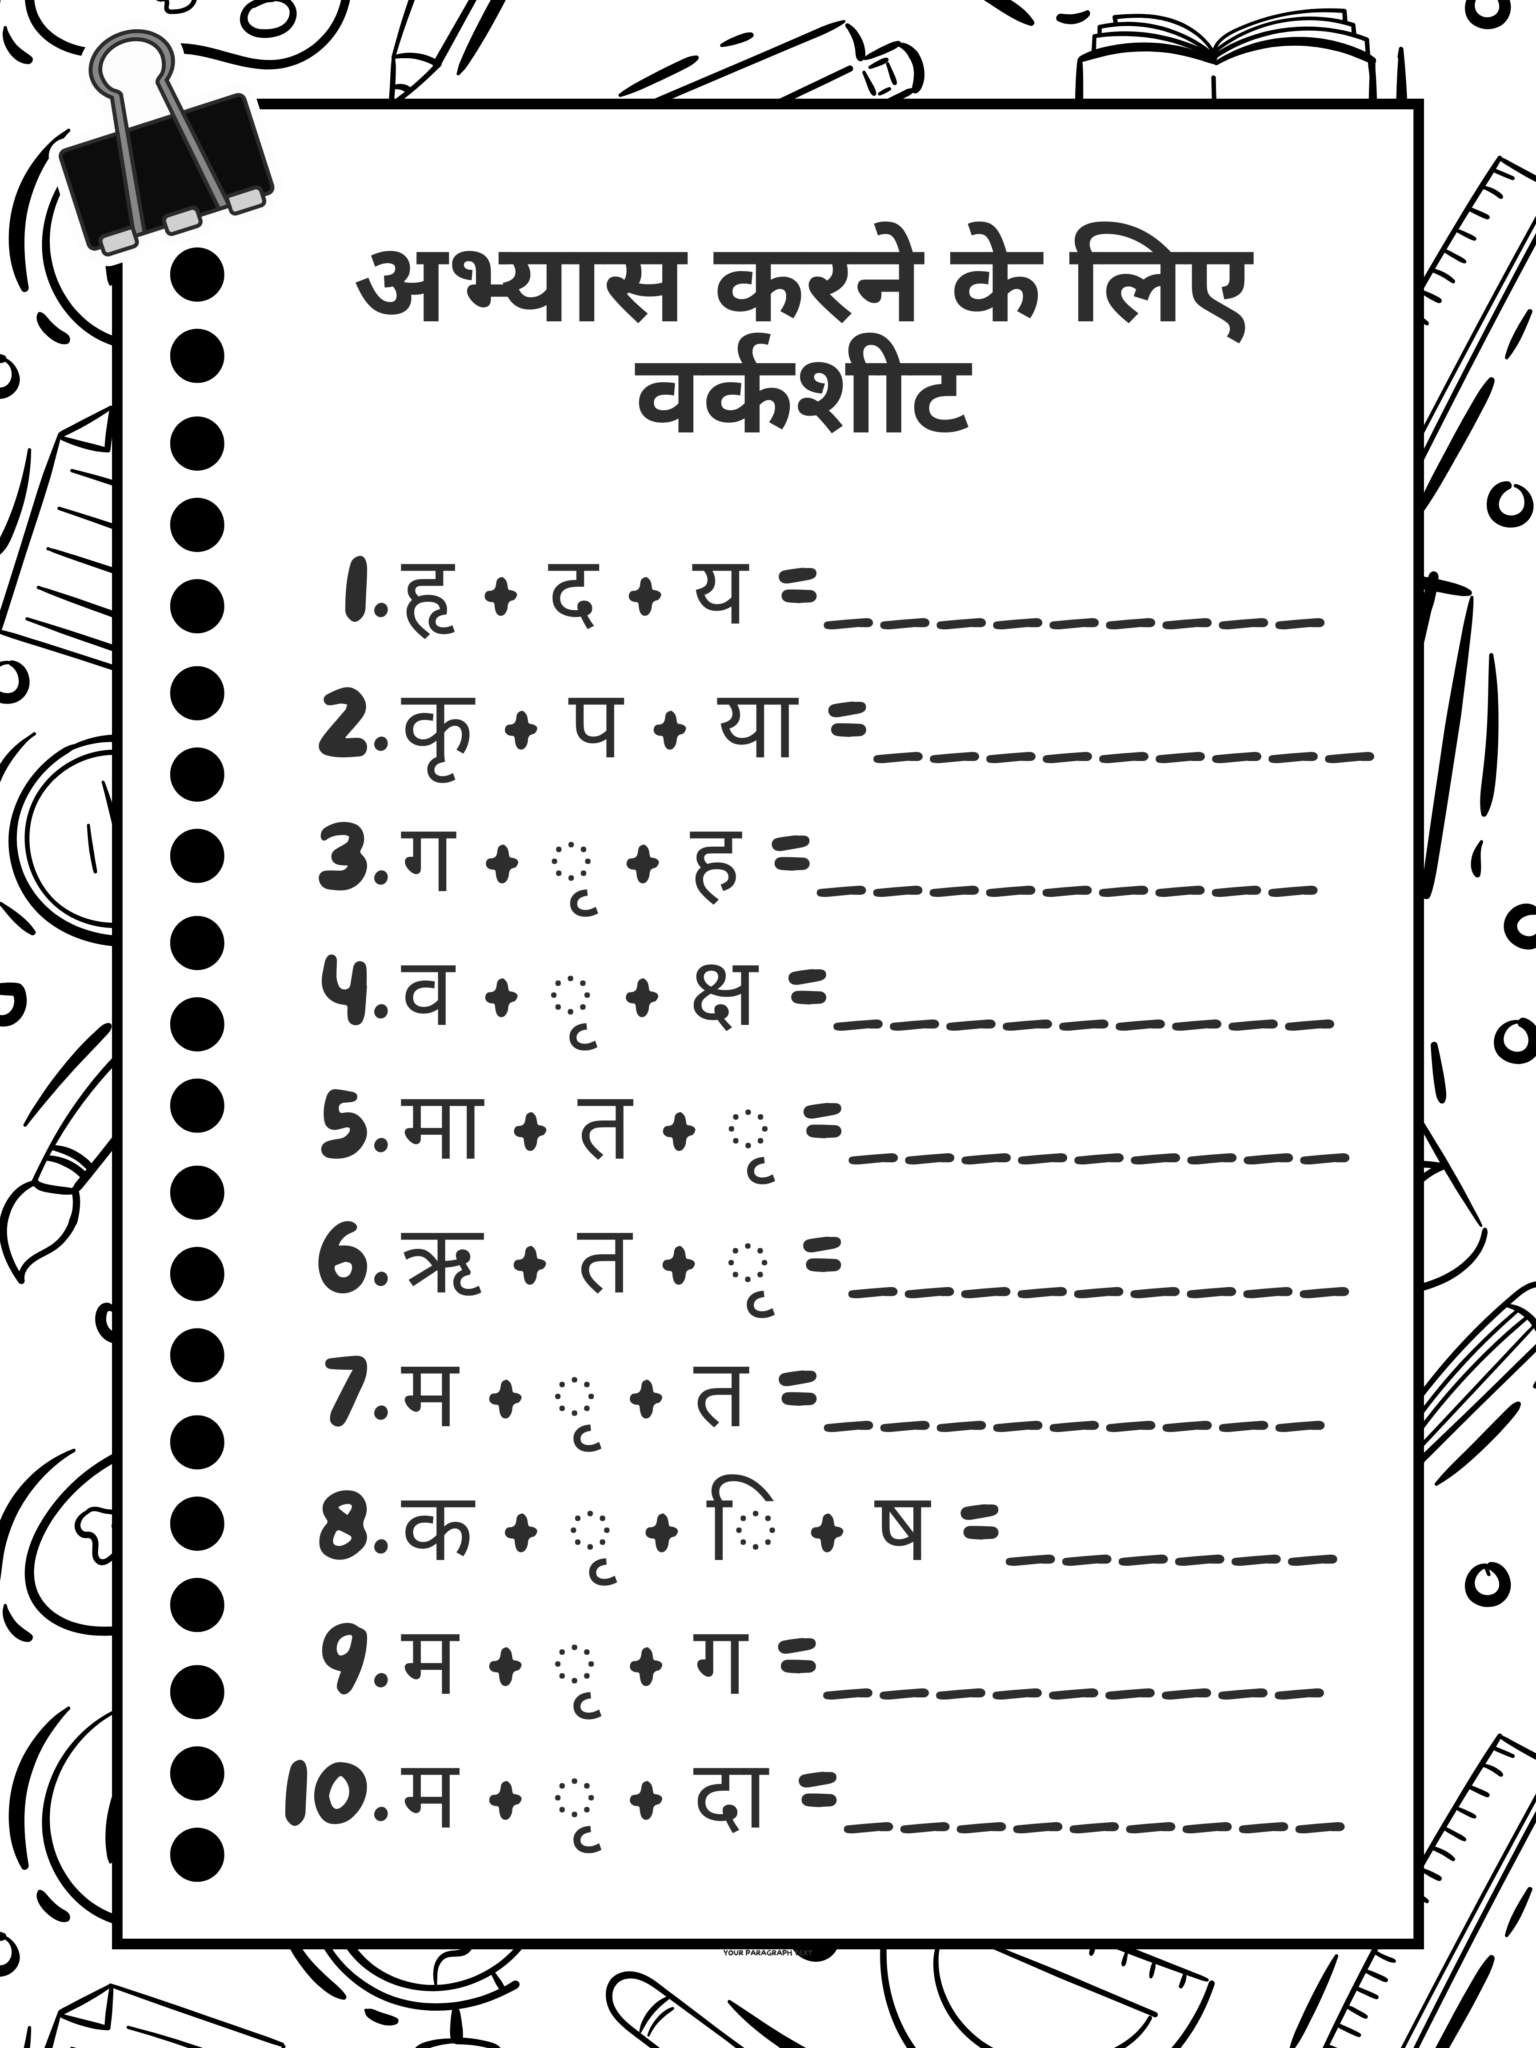 अभ्यास करने के लिए
वर्कशीट
1. हृ + द + य =__________
2. कृ + प + या =_________
3. ग + ृ + ह =_________
4. व + ृ + क्ष =_________
5. मा + त + ृ =_________
6. ऋ + त + ृ =_________
7. म + ृ + त =_________
8. क + ृ + ि + ष =______
9. म + ृ + ग =_________
10. म + ृ + दा =_________
YOUR PARAGRAPH TEXT